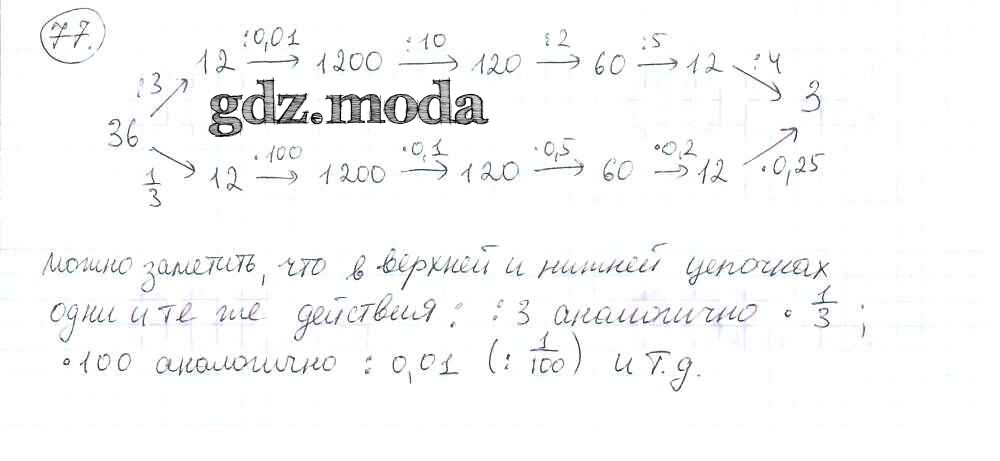 77.
:3 12 :0,01 1200 :10 120 :2 60 :5 12 :4
gdz.moda
36 3
1/3 12 ·100 1200 ·0,1 120 ·0,5 60 ·0,2 12 ·0,25
можно заметить, что в верхней и нижней цепочках
одни и те же действия: :3 аналогично · 1/3;
·100 аналогично :0,01 (: 1/100) и т.д.